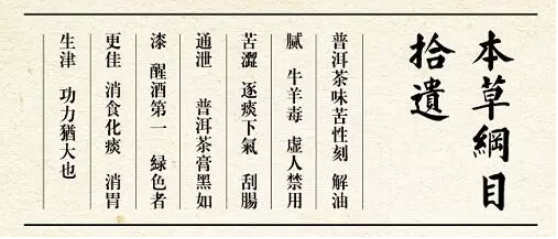 本草綱目
拾遺
普洱茶味苦性刻 解油
膩 牛羊毒 虛人禁用
苦澀 逐痰下氣 刮腸
通泄 普洱茶膏黑如
漆 醒酒第一 綠色者
更佳 消食化痰 消胃
生津 功力猶大也